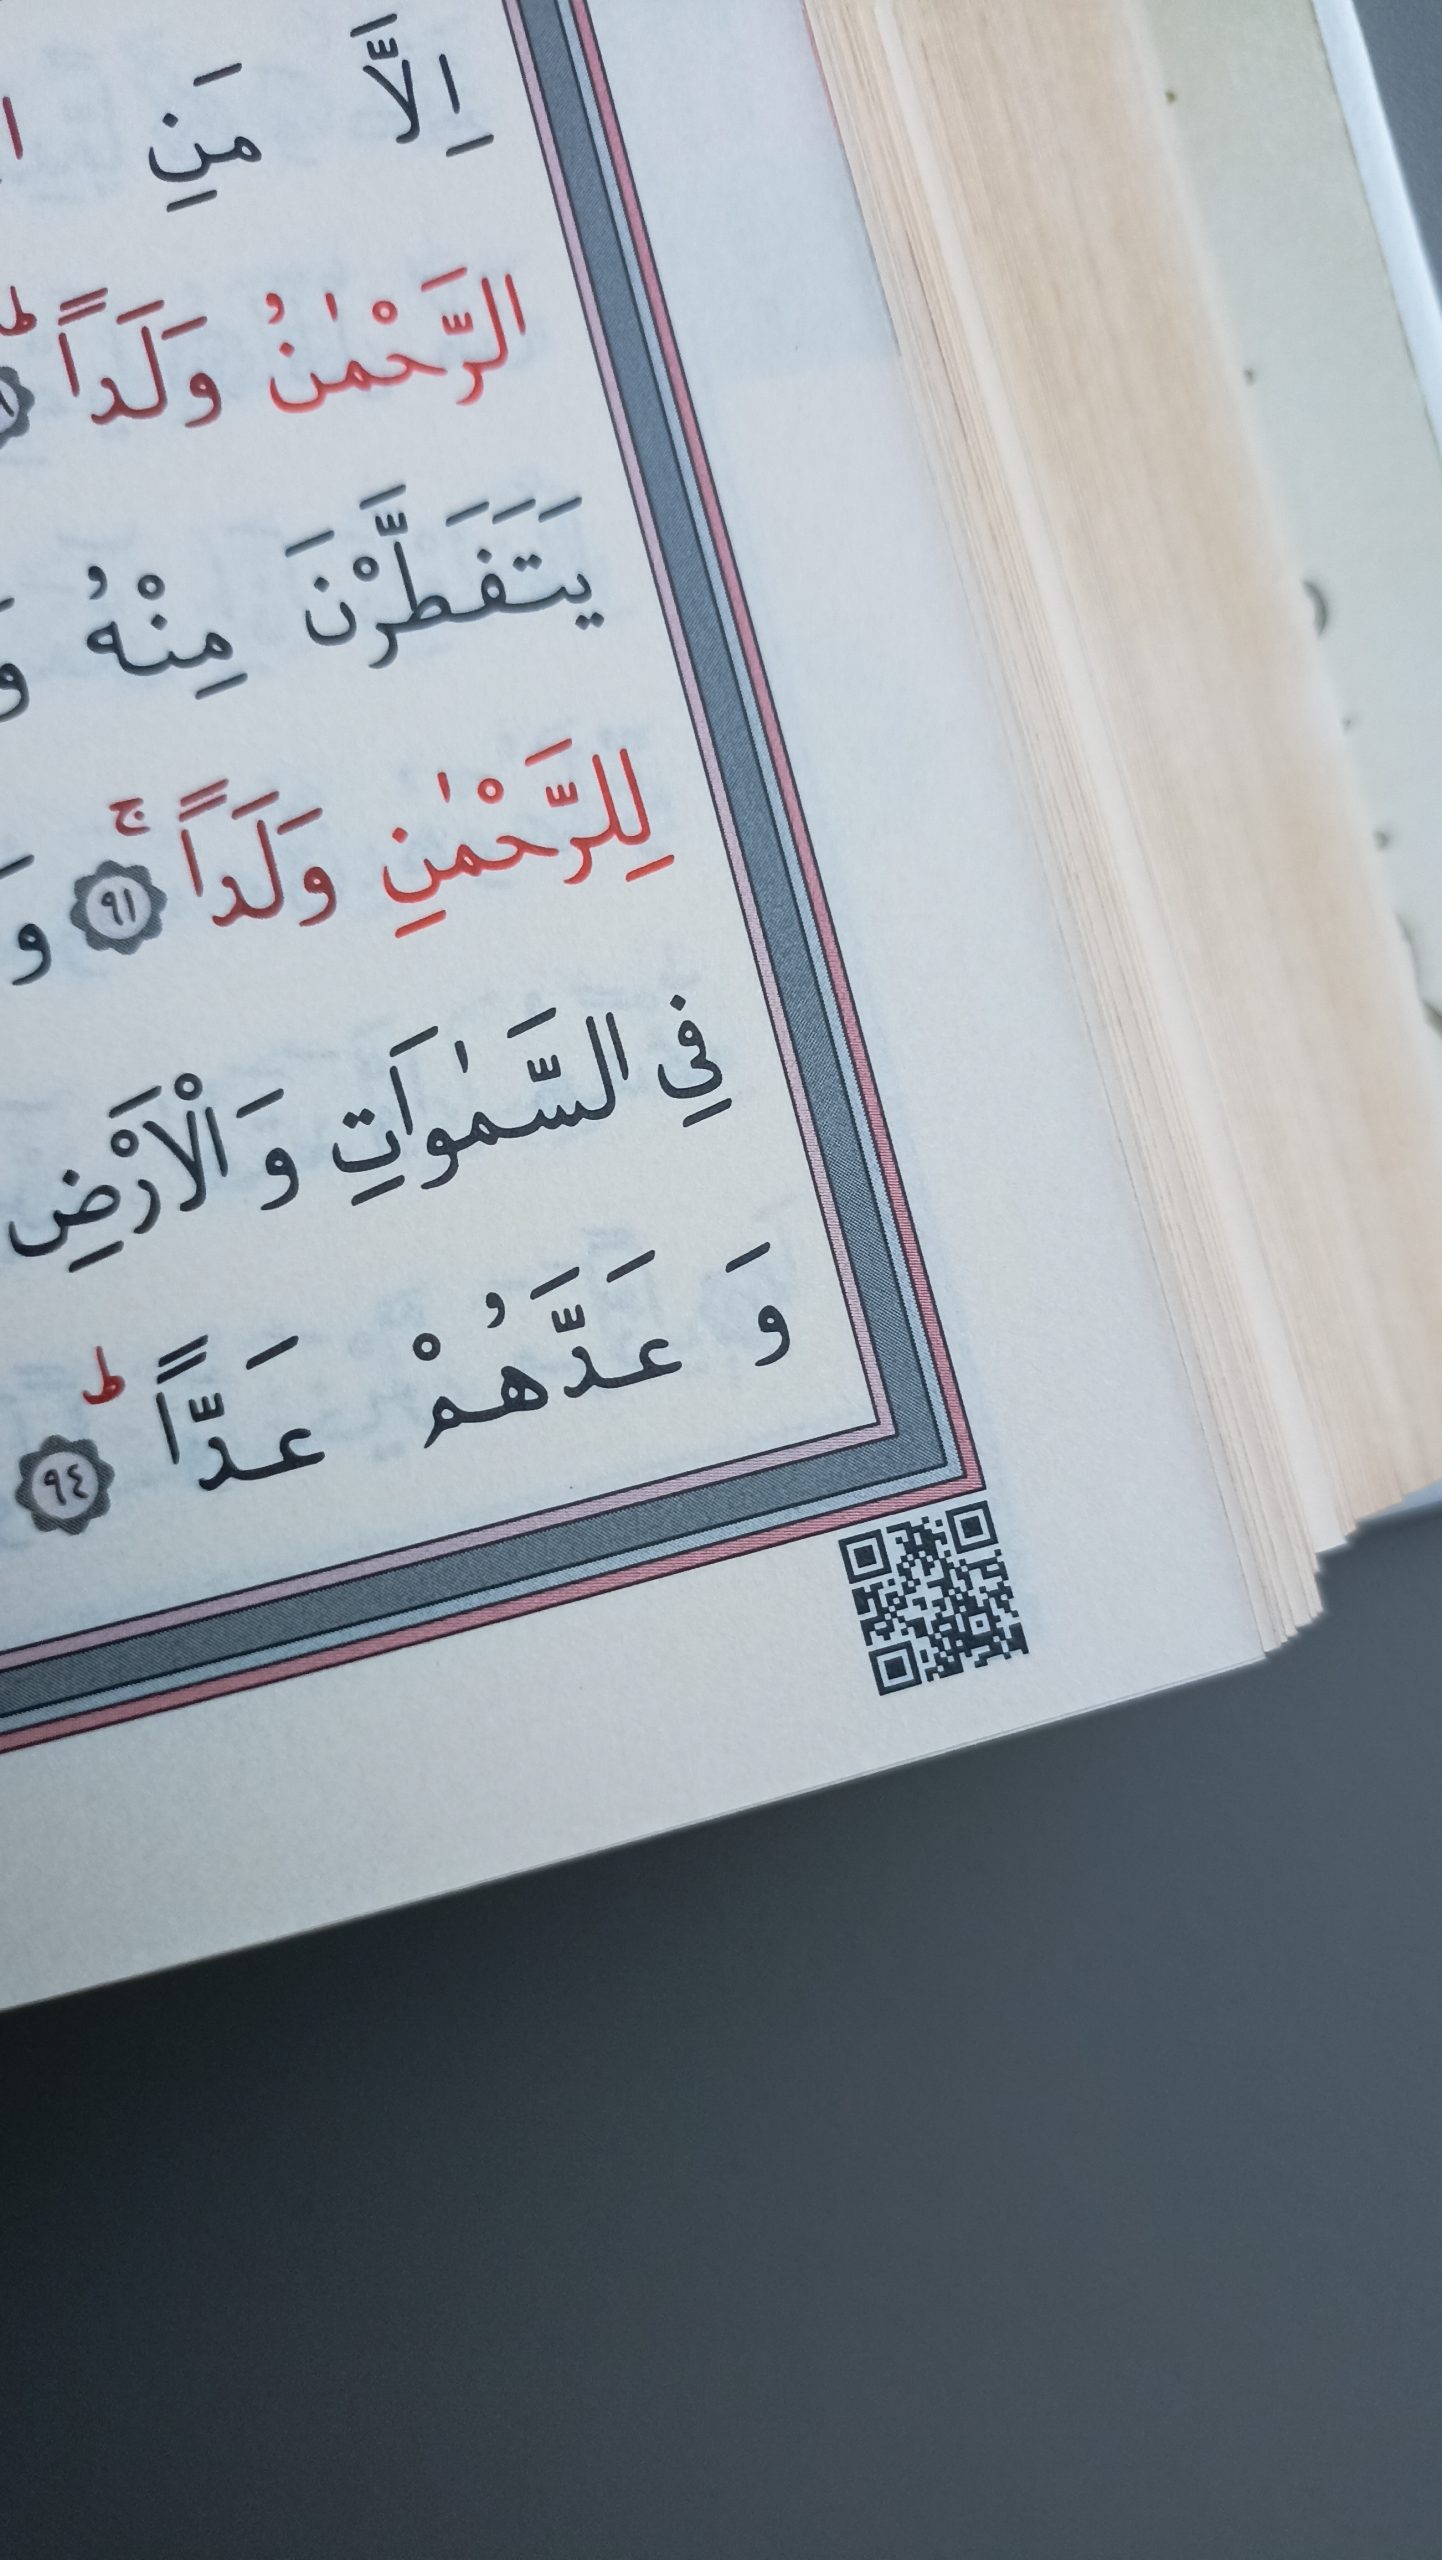 اِلَّا مَنِ
الرَّحْمٰنُ وَلَداًۜ
يَتَفَطَّرْنَ مِنْهُ
لِلرَّحْمٰنِ وَلَداًۚ ٩١ وَ
فِي السَّمٰوَاتِ وَالْاَرْضِ
وَ عَدَّهُمْ عَدًّاۜ ٩٤